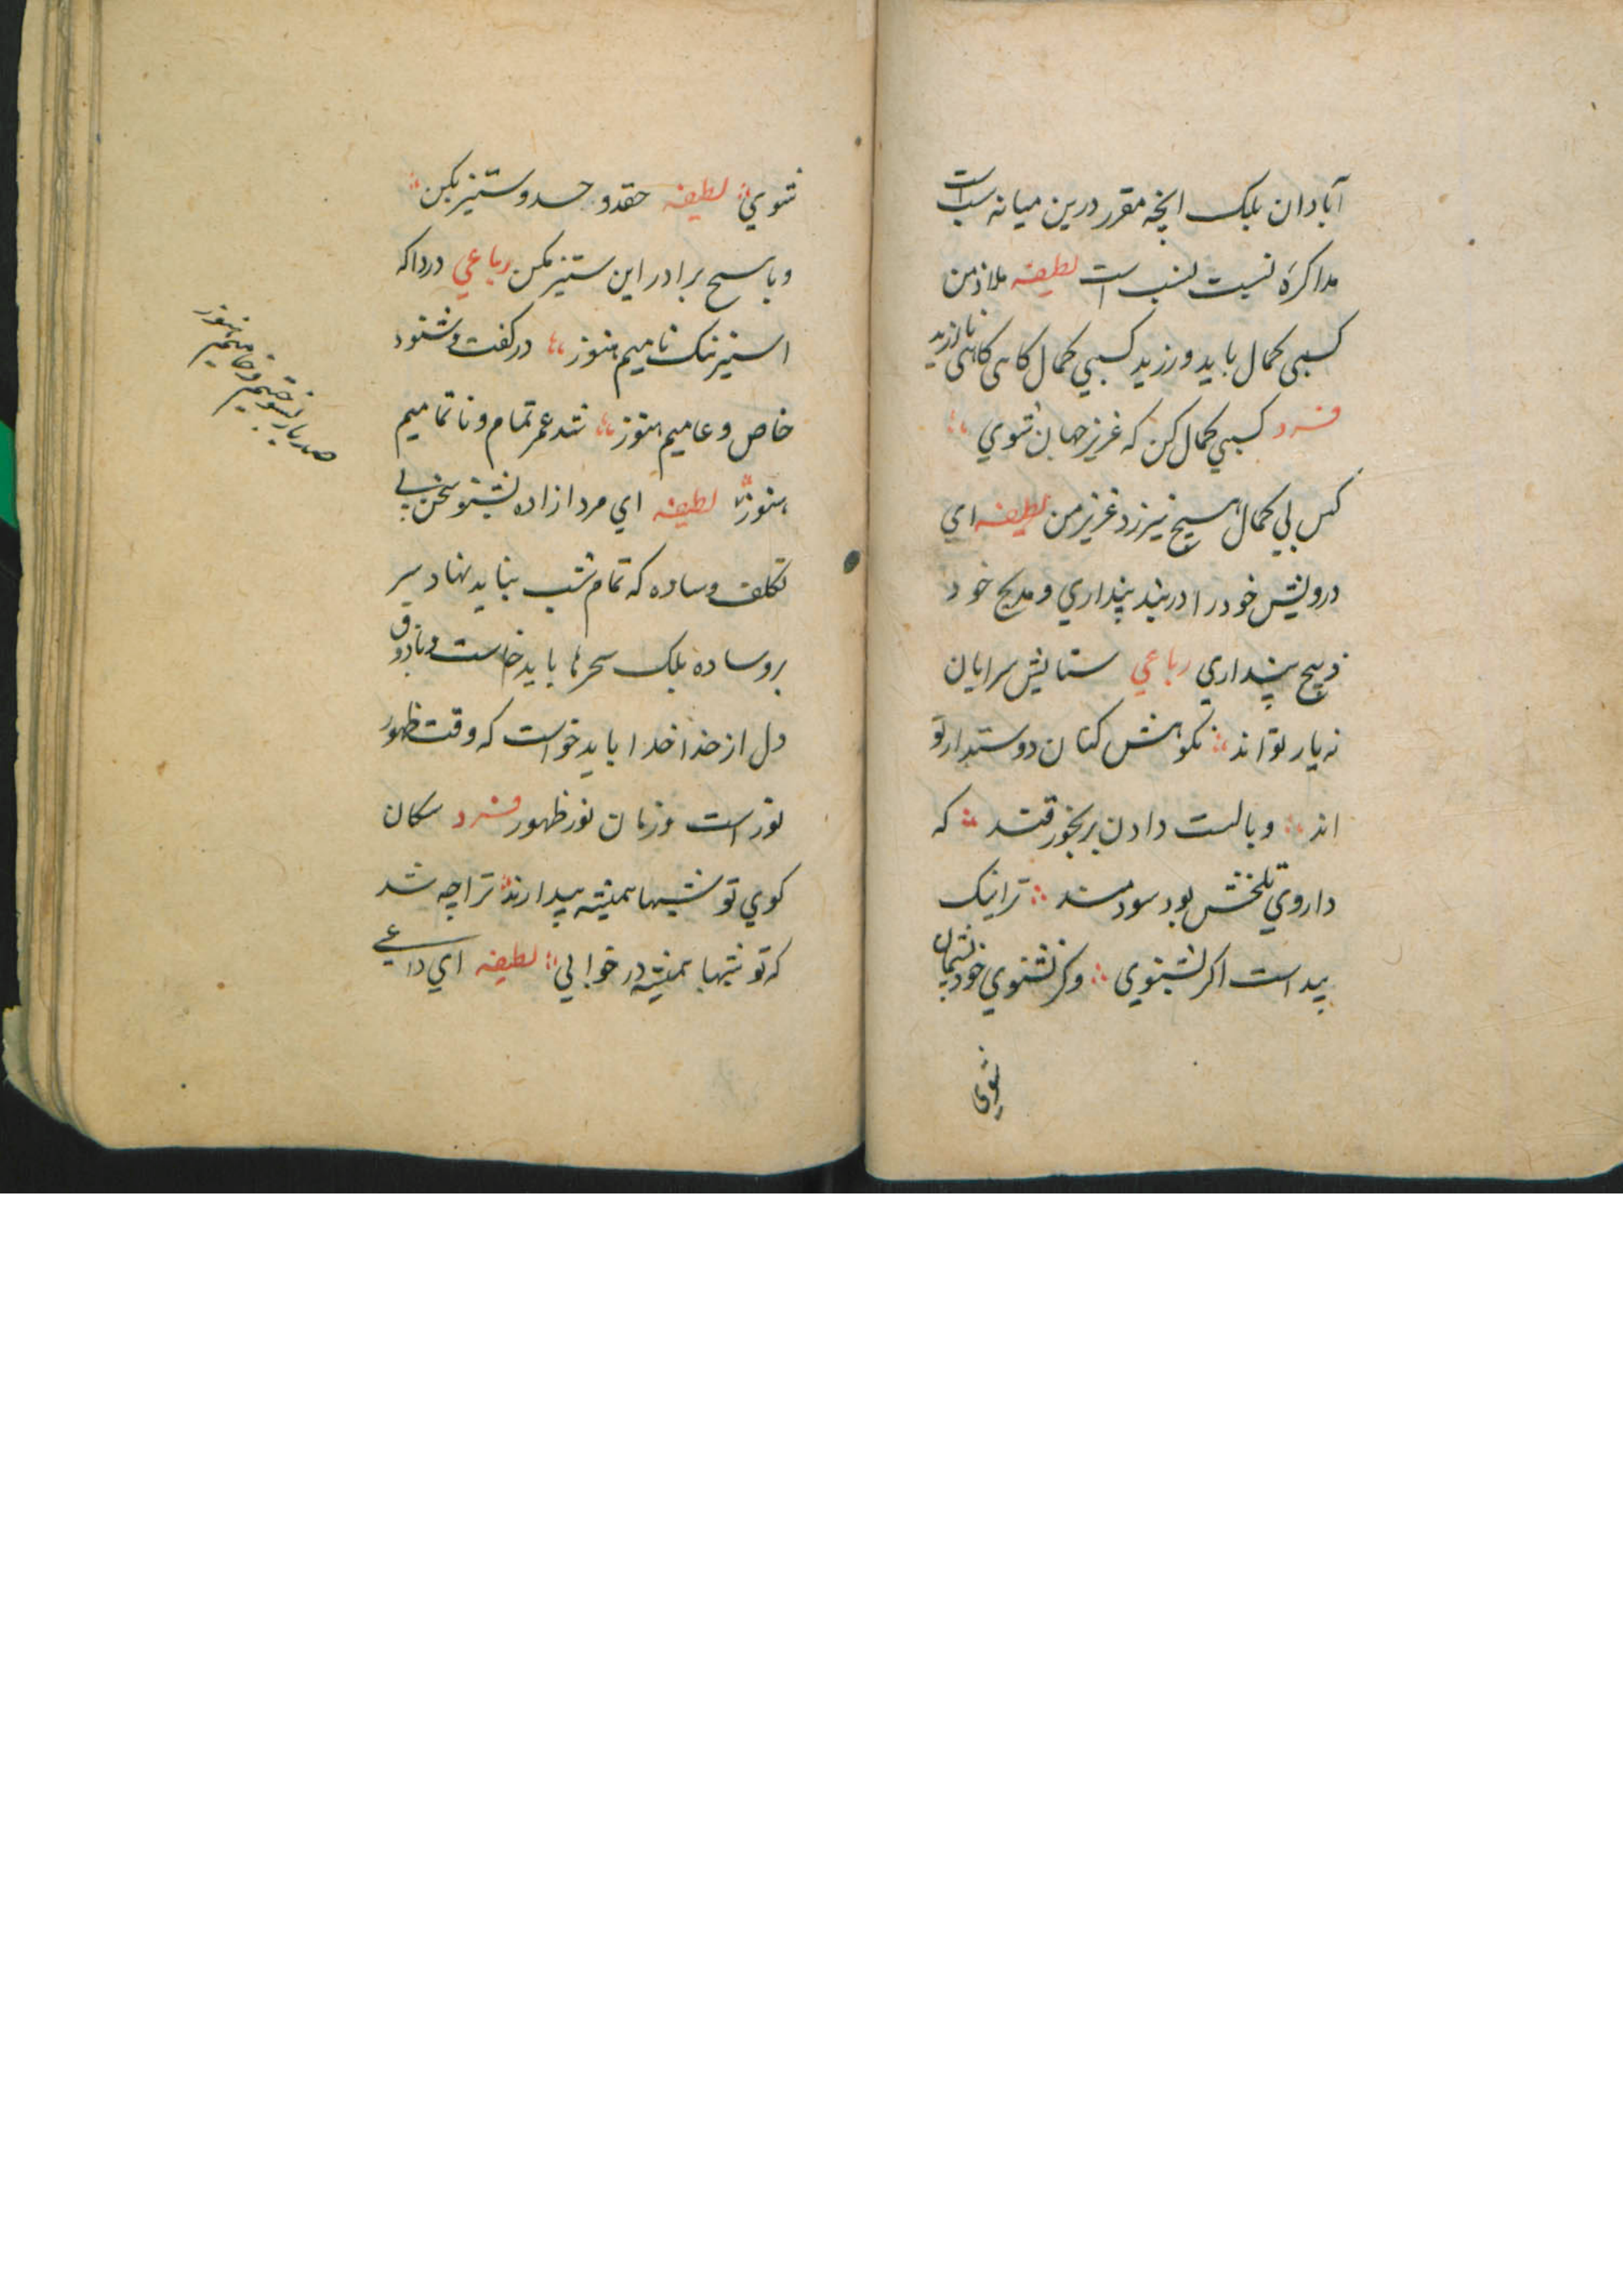 آبادان بلک انچه مقرر درین میانه است
مذاکرهٔ نسبت نسب است لطیفه ملاذ من
کسبی کمال باید ورزید کسبی کمال کاهی کاهی نارزید
فرد کسبی کمال کن که عزیز جهان شوی
کس بی کمال هیچ نیرزد عزیز من لطیفه ای
درویش خود را در بند پنداری و مدیح خود
ذبیح پنداری رباعی ستایش سرایان
نه یار تو اند نکوهش کنان دوستدار تو
اند وبالست دادن برنجور قند که
داروی تلخش بود سودمند ترا نیک
پید است اکر بشنوی وکر نشنوی خود پشیمان
شوی
شوی لطیفه حقد و حسد و ستیز مکن
و با هیچ برادر این ستیز مکن رباعی دردا که
اسیر ننک و نامیم هنوز در کفت و شنود
خاص و عامیم هنوز شد عمر تمام و نا تمامیم
هنوز لطیفه ای مرد ازاده بشنو سخن بی
تکلف و ساده که تمام شب نباید نهاد سر
بر وساده بلک سحرها باید خاست و با ذوق
دل از خدا خدا باید خواست که وقت ظهور
نور است و زمان نور ظهور فرد سکان
کوی تو شبها همیشه بیدارند ترا چه شد
که تو شبها همیشه در خوابی لطیفه ای داعی
صد بار بسوختیم و خامیم هنوز